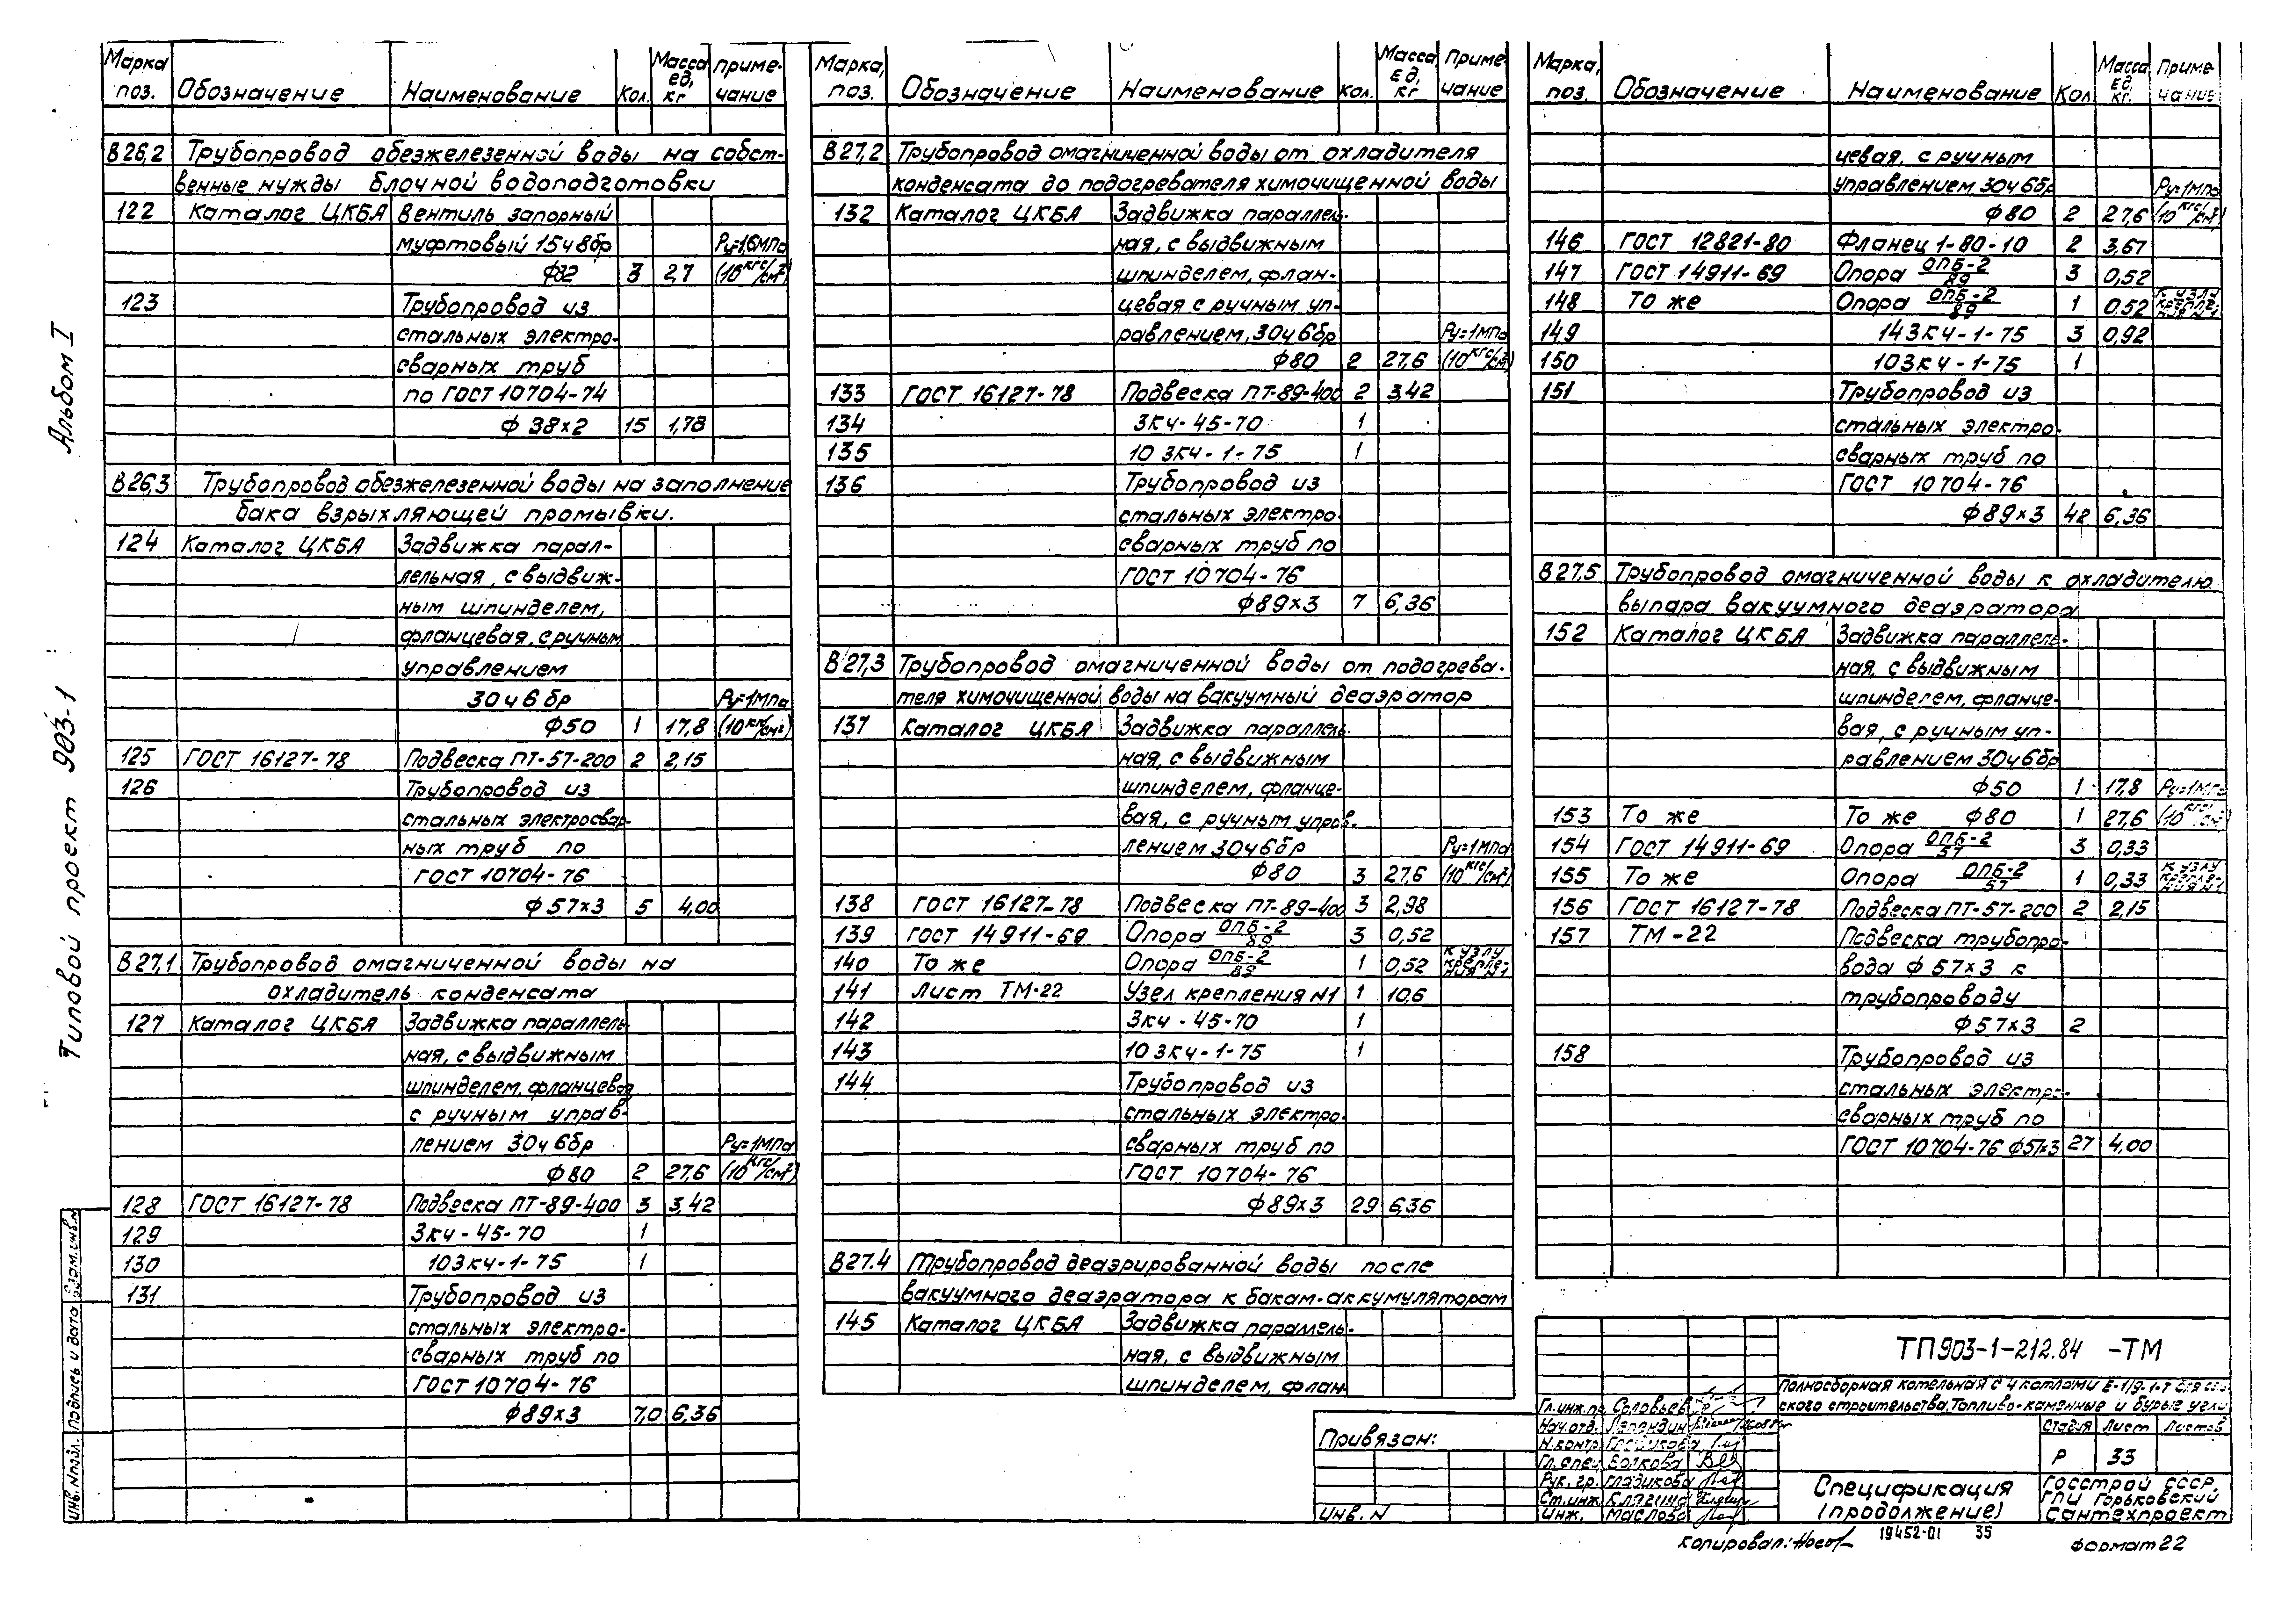 Альбом I
Типовой проект 903-1
Марка поз. Обозначение Наименование Кол. Масса ед, кг Приме- чание
В26,2 Трубопровод обезжелезенной воды на собст-
венные нужды блочной водоподготовки
122 Каталог ЦКБА Вентиль запорный
муфтовый 15ч8бр Ру=1,6МПа
ф32 3 2,7 (16кгс/см²)
123 Трубопровод из
стальных электро-
сварных труб
по ГОСТ 10704-74
ф 38х2 15 1,78
В26,3 Трубопровод обезжелезенной воды на заполнение
бака взрыхляющей промывки.
124 Каталог ЦКБА Задвижка парал-
лельная, с выдвиж-
ным шпинделем,
фланцевая, с ручным
управлением
30ч6бр Ру=1МПа
ф50 1 17,8 (10кгс/см²)
125 ГОСТ 16127-78 Подвеска ПТ-57-200 2 2,15
126 Трубопровод из
стальных электросвар-
ных труб по
ГОСТ 10704-76
ф57х3 5 4,00
В27,1 Трубопровод омагниченной воды на
охладитель конденсата
127 Каталог ЦКБА Задвижка параллель-
ная, с выдвижным
шпинделем, фланцевая
с ручным управ-
лением 30ч6бр Ру=1МПа
ф80 2 27,6 (10кгс/см²)
128 ГОСТ 16127-78 Подвеска ПТ-89-400 3 3,42
129 3кч-45-70 1
130 103кч-1-75 1
131 Трубопровод из
стальных электро-
сварных труб по
ГОСТ 10704-76
ф89х3 7,0 6,36
Марка, поз. Обозначение Наименование Кол. Масса Ед, кг Приме чание
В27,2 Трубопровод омагниченной воды от охладителя
конденсата до подогревателя химочищенной воды
132 Каталог ЦКБА Задвижка параллель-
ная, с выдвижным
шпинделем, флан-
цевая с ручным уп-
равлением, 30ч6бр Ру=1МПа
ф80 2 27,6 (10кгс/см²)
133 ГОСТ 16127-78 Подвеска ПТ-89-400 2 3,42
134 3кч-45-70 1
135 10 3кч-1-75 1
136 Трубопровод из
стальных электро-
сварных труб по
ГОСТ 10704-76
ф89х3 7 6,36
В27,3 Трубопровод омагниченной воды от подогрева-
теля химочищенной воды на вакуумный деаэратор
137 Каталог ЦКБА Задвижка параллель-
ная, с выдвижным
шпинделем, фланце-
вая, с ручным управ-
лением 30ч6бр Ру=1МПа
ф80 3 27,6 (10кгс/см²)
138 ГОСТ 16127-78 Подвеска ПТ-89-400 3 2,98
139 ГОСТ 14911-69 Опора ОПБ-2/89 3 0,52
140 То же Опора ОПБ-2/89 1 0,52 к узлу крепле- ния N1
141 Лист ТМ-22 Узел крепления N1 1 10,6
142 3кч-45-70 1
143 10 3кч-1-75 1
144 Трубопровод из
стальных электро-
сварных труб по
ГОСТ 10704-76
ф89х3 29 6,36
В27.4 Трубопровод деаэрированной воды после
вакуумного деаэратора к бакам-аккумуляторам
145 Каталог ЦКБА Задвижка параллель-
ная, с выдвижным
шпинделем, флан-
Марка, поз. Обозначение Наименование Кол Масса Ед, кг. Приме чание
цевая, с ручным
управлением 30ч6бр Ру=1МПа
ф80 2 27,6 (10кгс/см²)
146 ГОСТ 12821-80 Фланец 1-80-10 2 3,67
147 ГОСТ 14911-69 Опора ОПБ-2/89 3 0,52
148 То же Опора ОПБ-2/89 1 0,52 к узлу крепле- ния N1
149 143кч-1-75 3 0,92
150 103кч-1-75 1
151 Трубопровод из
стальных электро-
сварных труб по
ГОСТ 10704-76
ф89х3 42 6,36
В27,5 Трубопровод омагниченной воды к охладителю
выпара вакуумного деаэратора
152 Каталог ЦКБА Задвижка параллель-
ная, с выдвижным
шпинделем, фланце-
вая, с ручным уп-
равлением 30ч6бр
ф50 1 17,8 Ру=1МПа
153 То же То же ф80 1 27,6 (10кгс/см²)
154 ГОСТ 14911-69 Опора ОПБ-2/57 3 0,33
155 То же Опора ОПБ-2/57 1 0,33 к узлу крепле- ния N1
156 ГОСТ 16127-78 Подвеска ПТ-57-200 2 2,15
157 ТМ-22 Подвеска трубопро-
вода ф 57х3 к
трубопроводу
ф57х3 2
158 Трубопровод из
стальных электро-
сварных труб по
ГОСТ 10704-76 ф57х3 27 4,00
ТП903-1-212.84 -ТМ
Полносборная котельная с 4 котлами Е-1/9-1-Т для сель-
ского строительства. Топливо-каменные и бурые угли
Гл.инж.пр. Соловьев
Нач.отд.
Н.контр. Гладикова
Гл.спец Волкова
Рук. гр. Гладикова
Ст.инж.
Инж. Маслова
Стадия Лист Листов
Р 33
Спецификация
(продолжение)
Госстрой СССР
ГПИ Горьковский
Сантехпроект
Привязан:
Инв. N
Инв. N подл. Подпись и дата Взам.инв.N
Копировал: 19452-01 35 Формат 22